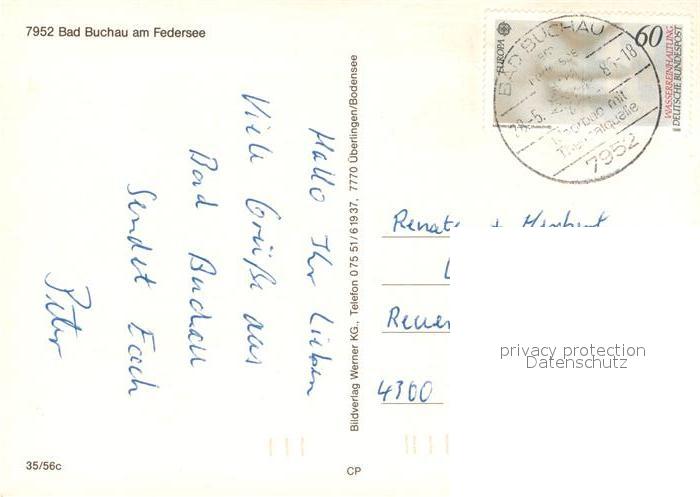 7952 Bad Buchau am Federsee
Hallo Ihr Lieben
Viele Grüße aus
Bad Buchau
Sendet Euch
Peter
35/56c
Bildverlag Werner KG., Telefon 0 75 51 / 6 19 37, 7770 Überlingen/Bodensee
CP
EUROPA
60
WASSERREINHALTUNG
DEUTSCHE BUNDESPOST
BAD BUCHAU
-5. 8 -18
Moorbad mit
Thermalquelle
7952
Renate + Herbert
4300
privacy protection
Datenschutz